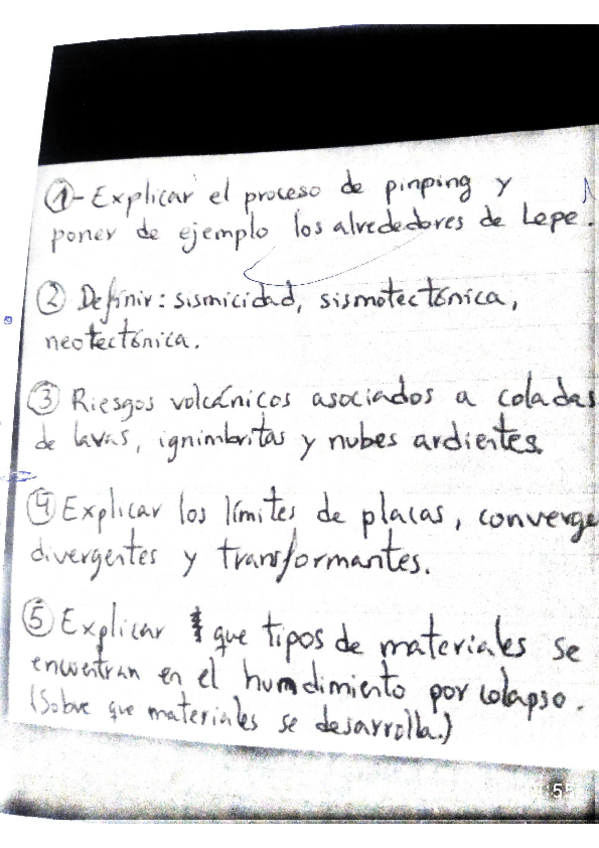 ①- Explicar el proceso de pinping y
poner de ejemplo los alrededores de Lepe.
② Definir: sismicidad, sismotectónica,
neotectónica.
③ Riesgos volcánicos asociados a coladas
de lavas, ignimbritas y nubes ardientes.
④ Explicar los límites de placas, converge
divergentes y transformantes.
⑤ Explicar que tipos de materiales se
encuentran en el humdimiento por colapso.
(Sobre que materiales se desarrolla.)
:55